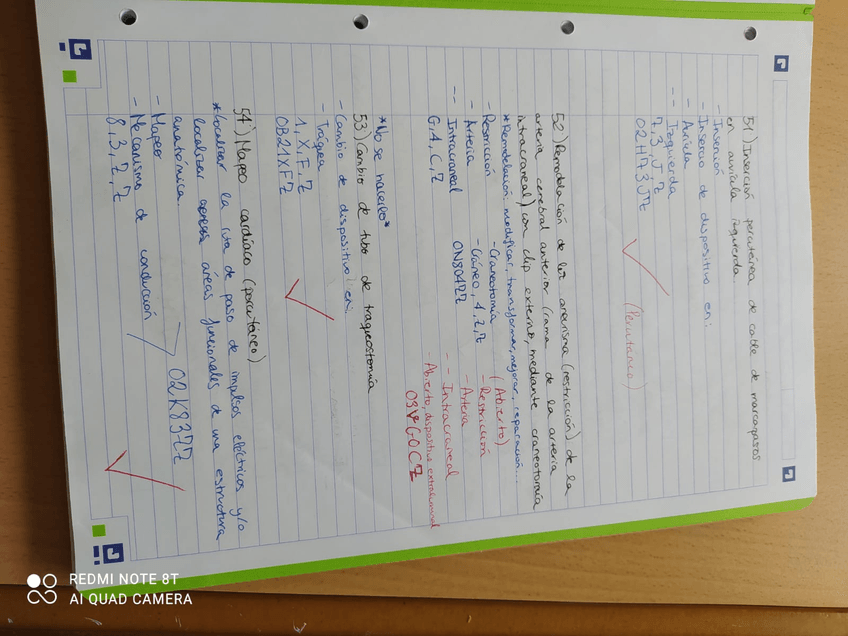 51) Inserción percutánea de cable de marcapasos
en aurícula izquierda.
- Inserción
- Inserció de dispositivo en:
- Aurícula
-- Izquierda
7, 3, J, Z
02H73JZ
(Percutáneo)
52) Remodelación de aneurisma (restricción) de la
arteria cerebral anterior (rama de la arteria
intracraneal) con clip externo, mediante craneotomía
*Remodelación: modificar, transformar, mejorar, reparación...
- Restricción
- Arteria
-- Intracraneal
G, 4, C, Z
- Craneotomía
- Cráneo, 4, Z, Z
0N804ZZ
(Abierto)
- Restricción
- Arteria
-- Intracraneal
Abierto, dispositivo extraluminal
03VG0CZ
*No se hacerlo*
53) Cambio de tubo de traqueostomía
- Cambio de dispositivo en:
- Tráquea
1, X, F, Z
0B21XFZ
54) Mapeo cardíaco (percutáneo)
*localizar la ruta de paso de impulsos eléctricos y/o
localizar áreas funcionales de una estructura
anatómica.
- Mapeo
- Mecanismo de conducción
8, 3, Z, Z
02K83ZZ
REDMI NOTE 8T
AI QUAD CAMERA